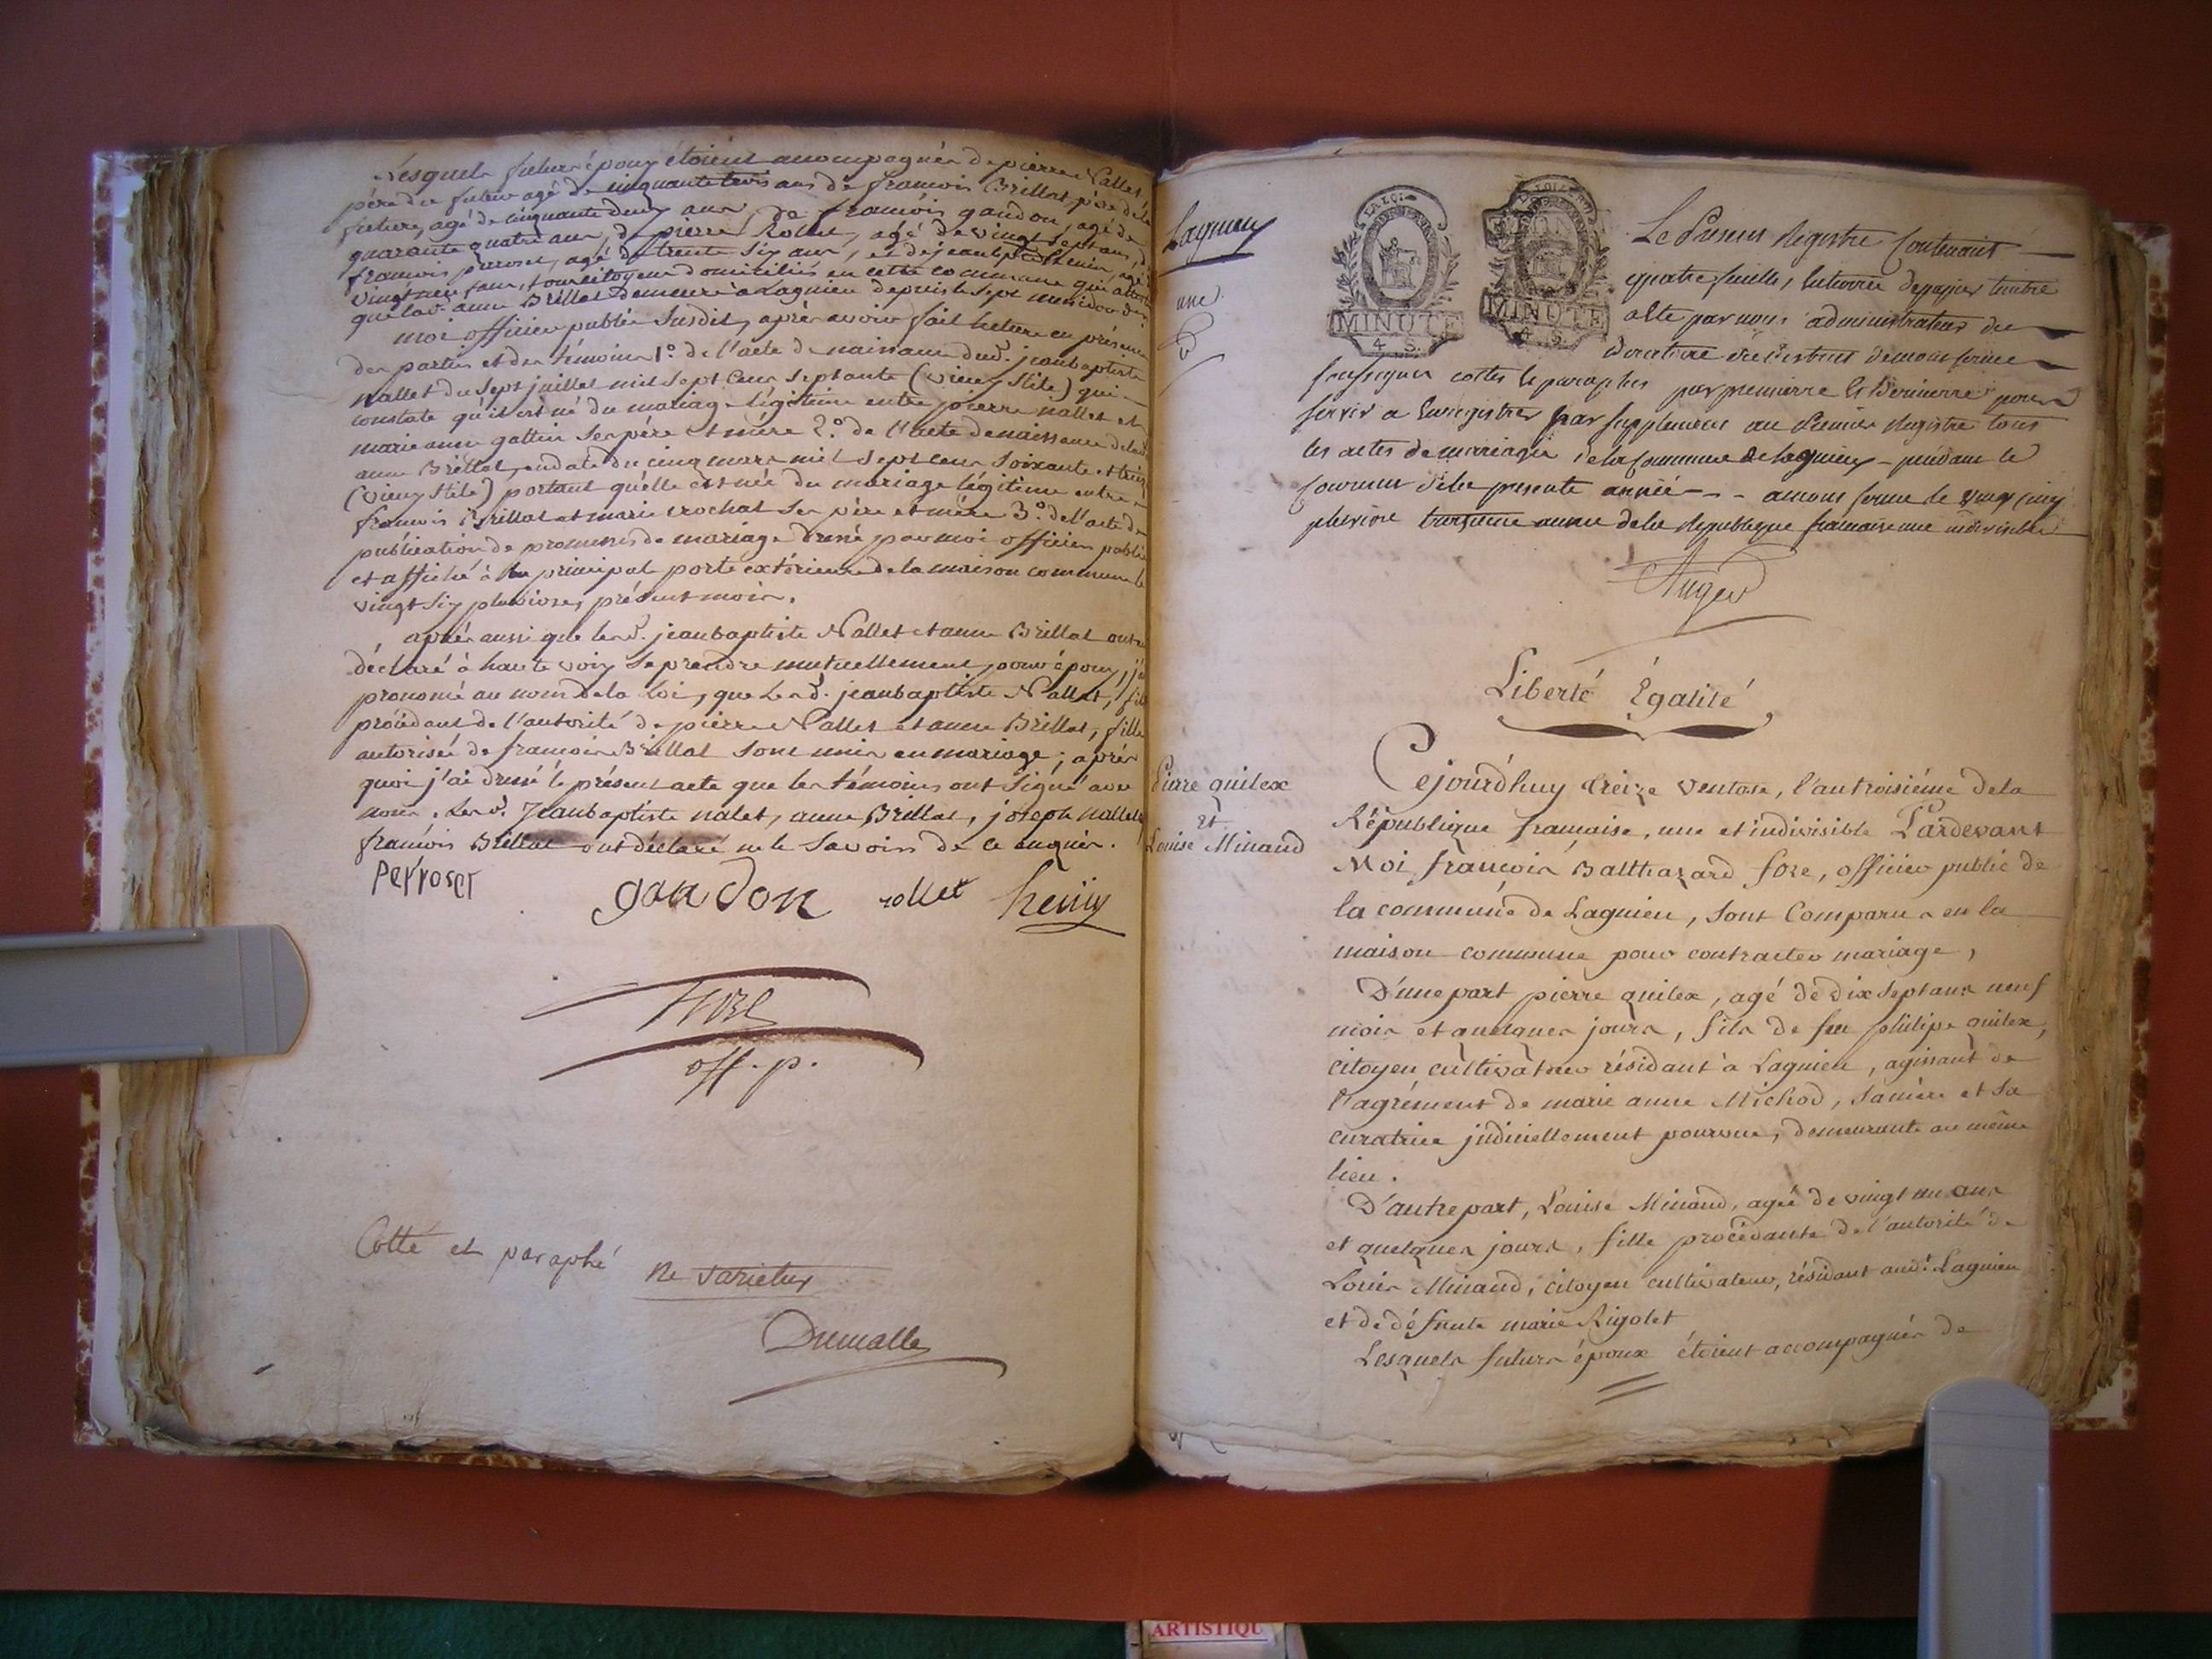 Lesquels futurs époux étoient accompagnés de pierre Nallet
père du futur agé de cinquante trois ans de francois Brillat père de la
future, agé de cinquante deux ans, de francois gandon, agé de
quarante quatre ans, de pierre Rollet, agé de vingt sept ans, de
francois perroset, agé de trente six ans, et de jean henin, agé de
vingt neuf ans, tous citoyens domiciliés en cette commune qui
que lad. anne Brillat demeure à Lagnieu depuis le sept messidor
moi officier public susdit, après avoir fait lecture en présence
des parties et des témoins 1.º de l'acte de naissance dud. jeanbaptiste
Nallet du sept juillet mil sept cens septante (vieux stile) qui
constate qu'il est né du mariage légitime entre pierre nallet et
marie anne gallin ses père et mère 2.º de l'acte de naissance de lad.
anne Brillat, en date du cinq mars mil sept cens soixante et treize
(vieux stile) portant quelle est née du mariage légitime entre
francois Brillat et marie crochat ses père et mère 3.º de l'acte de
publication de promesses de mariage dressé par moi officier public
et affiché à la principal porte extérieure de la maison commune le
vingt six pluviose, présent mois.
après aussi que lesd. jeanbaptiste Nallet et anne Brillat ont
déclaré à haute voix se prendre mutuellement pour époux, j'ai
prononcé au nom de la loi, que lesd. jeanbaptiste Nallet, fils
procédant de l'autorité de pierre Nallet et anne Brillat, fille
autorisée de francois Brillat sont unis en mariage; après
quoi j'ai dressé le présent acte que les témoins ont signé avec
nous. Lesd. Jeanbaptiste nalet, anne Brillat, joseph nallet
francois Brillat ont déclaré ne le savoir de ce enquis.
perroset gandon rollet henin
fore
off. p.
Cotté et paraphé ne varietur
Dumalle
Lagnieu
une
Le Present Registre Contenant
quatre feuilles, de papier timbré
a été par nous administrateur du
directoire du district de montferme
soussigné cottés et paraphés par premierre et Dernierre pour
servir a Enregistrer par supplement au Premier Registre tous
les actes de mariage de la Commune de Lagnieu pendant le
courant de la presente année - - amont ferme le vingt cinq
pluviose troisieme annee de la Republique francaise une indivisible
Auger
LA LOI
MINUTE
4 S.
LA LOI
MINUTE
4 S.
Liberté Égalité
Pierre quilex
et
Louise Minand
Cejourd'huy treize ventose, l'an troisième de la
République francaise, une et indivisible Pardevant
Moi francois Balthazard fore, officier public de
la commune de Lagnieu, sont Comparus en la
maison commune pour contracter mariage,
D'une part pierre quilex, agé de dix sept ans neuf
mois et quelques jours, fils de feu philipe quilex,
citoyen cultivateur résidant à Lagnieu, agissant de
l'agrément de marie anne Michod, sa mère et sa
curatrice judiciellement pourvue, demeurante au même
lieu.
D'autre part, Louise Minand, agée de vingt un ans
et quelques jours, fille procédante de l'autorité de
Louis Minand, citoyen cultivateur, résidant aud.t Lagnieu
et de défunte marie Rigolet
Lesquels futurs époux étoient accompagnés de